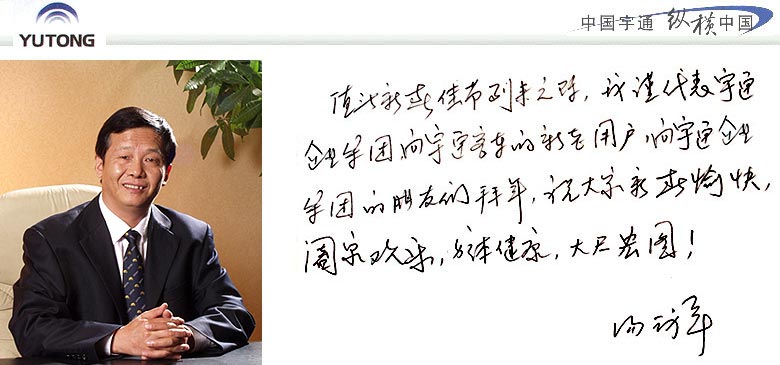 YUTONG
中国宇通 纵横中国
值此新春佳节到来之际，我谨代表宇通
企业集团向宇通客车的新老用户，向宇通企业
集团的朋友们拜年，祝大家新春愉快，
阖家欢乐，身体健康，大展宏图！